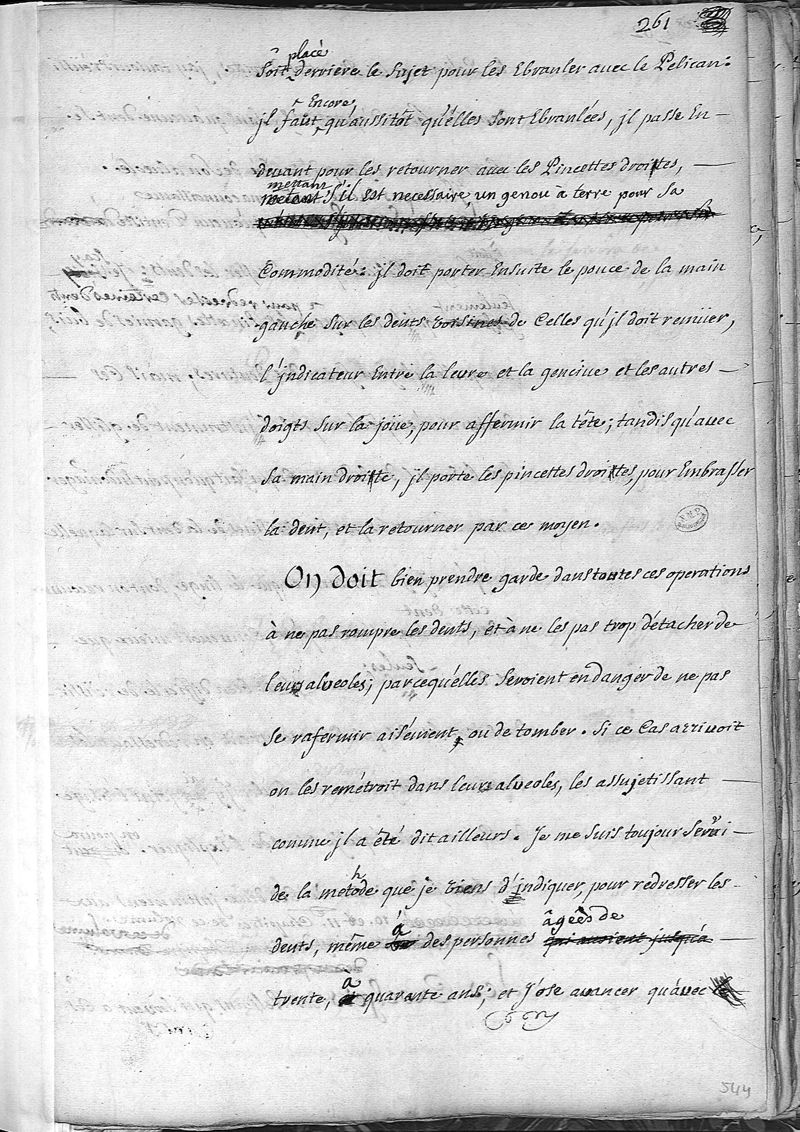 261
placé
soit derriere le sujet pour les Ebranler avec le Pelican:
Encore,
jl faut qu'aussitôt qu'elles sont Ebranlées, jl passe En
devant pour les retourner avec les Pincettes droites,
mettant
metant s'il est necessaire, un genou à terre pour sa
Commodité: jl doit porter Ensuite le pouce de la main
gauche sur les dents voisines de Celles qu'jl doit remuer,
l'jndicateur Entre la levre et la gencive et les autres
doigts sur la joüe, pour affermir la tête; tandis qu'avec
sa main droitte, jl porte les pincettes droittes, pour Embrasser
la dent, et la retourner par ce moyen.
On doit bien prendre garde dans toutes ces operations
à ne pas rompre les dents, et à ne les pas trop détacher de
leurs alveoles; parcequ'elles seroient en danger de ne pas
se rafermir aisément, ou de tomber. Si ce Cas arrivoit
on les remétroit dans leurs alveoles, les assujetissant
comme jl a été dit ailleurs. Je me suis toujour servi
h
de la metode que je viens d'jndiquer, pour redresser les
à âgeés de
dents, même des personnes qui avoient jusqu'a
a
trente, quarante ans; et j'ose avancer qu'avec
544